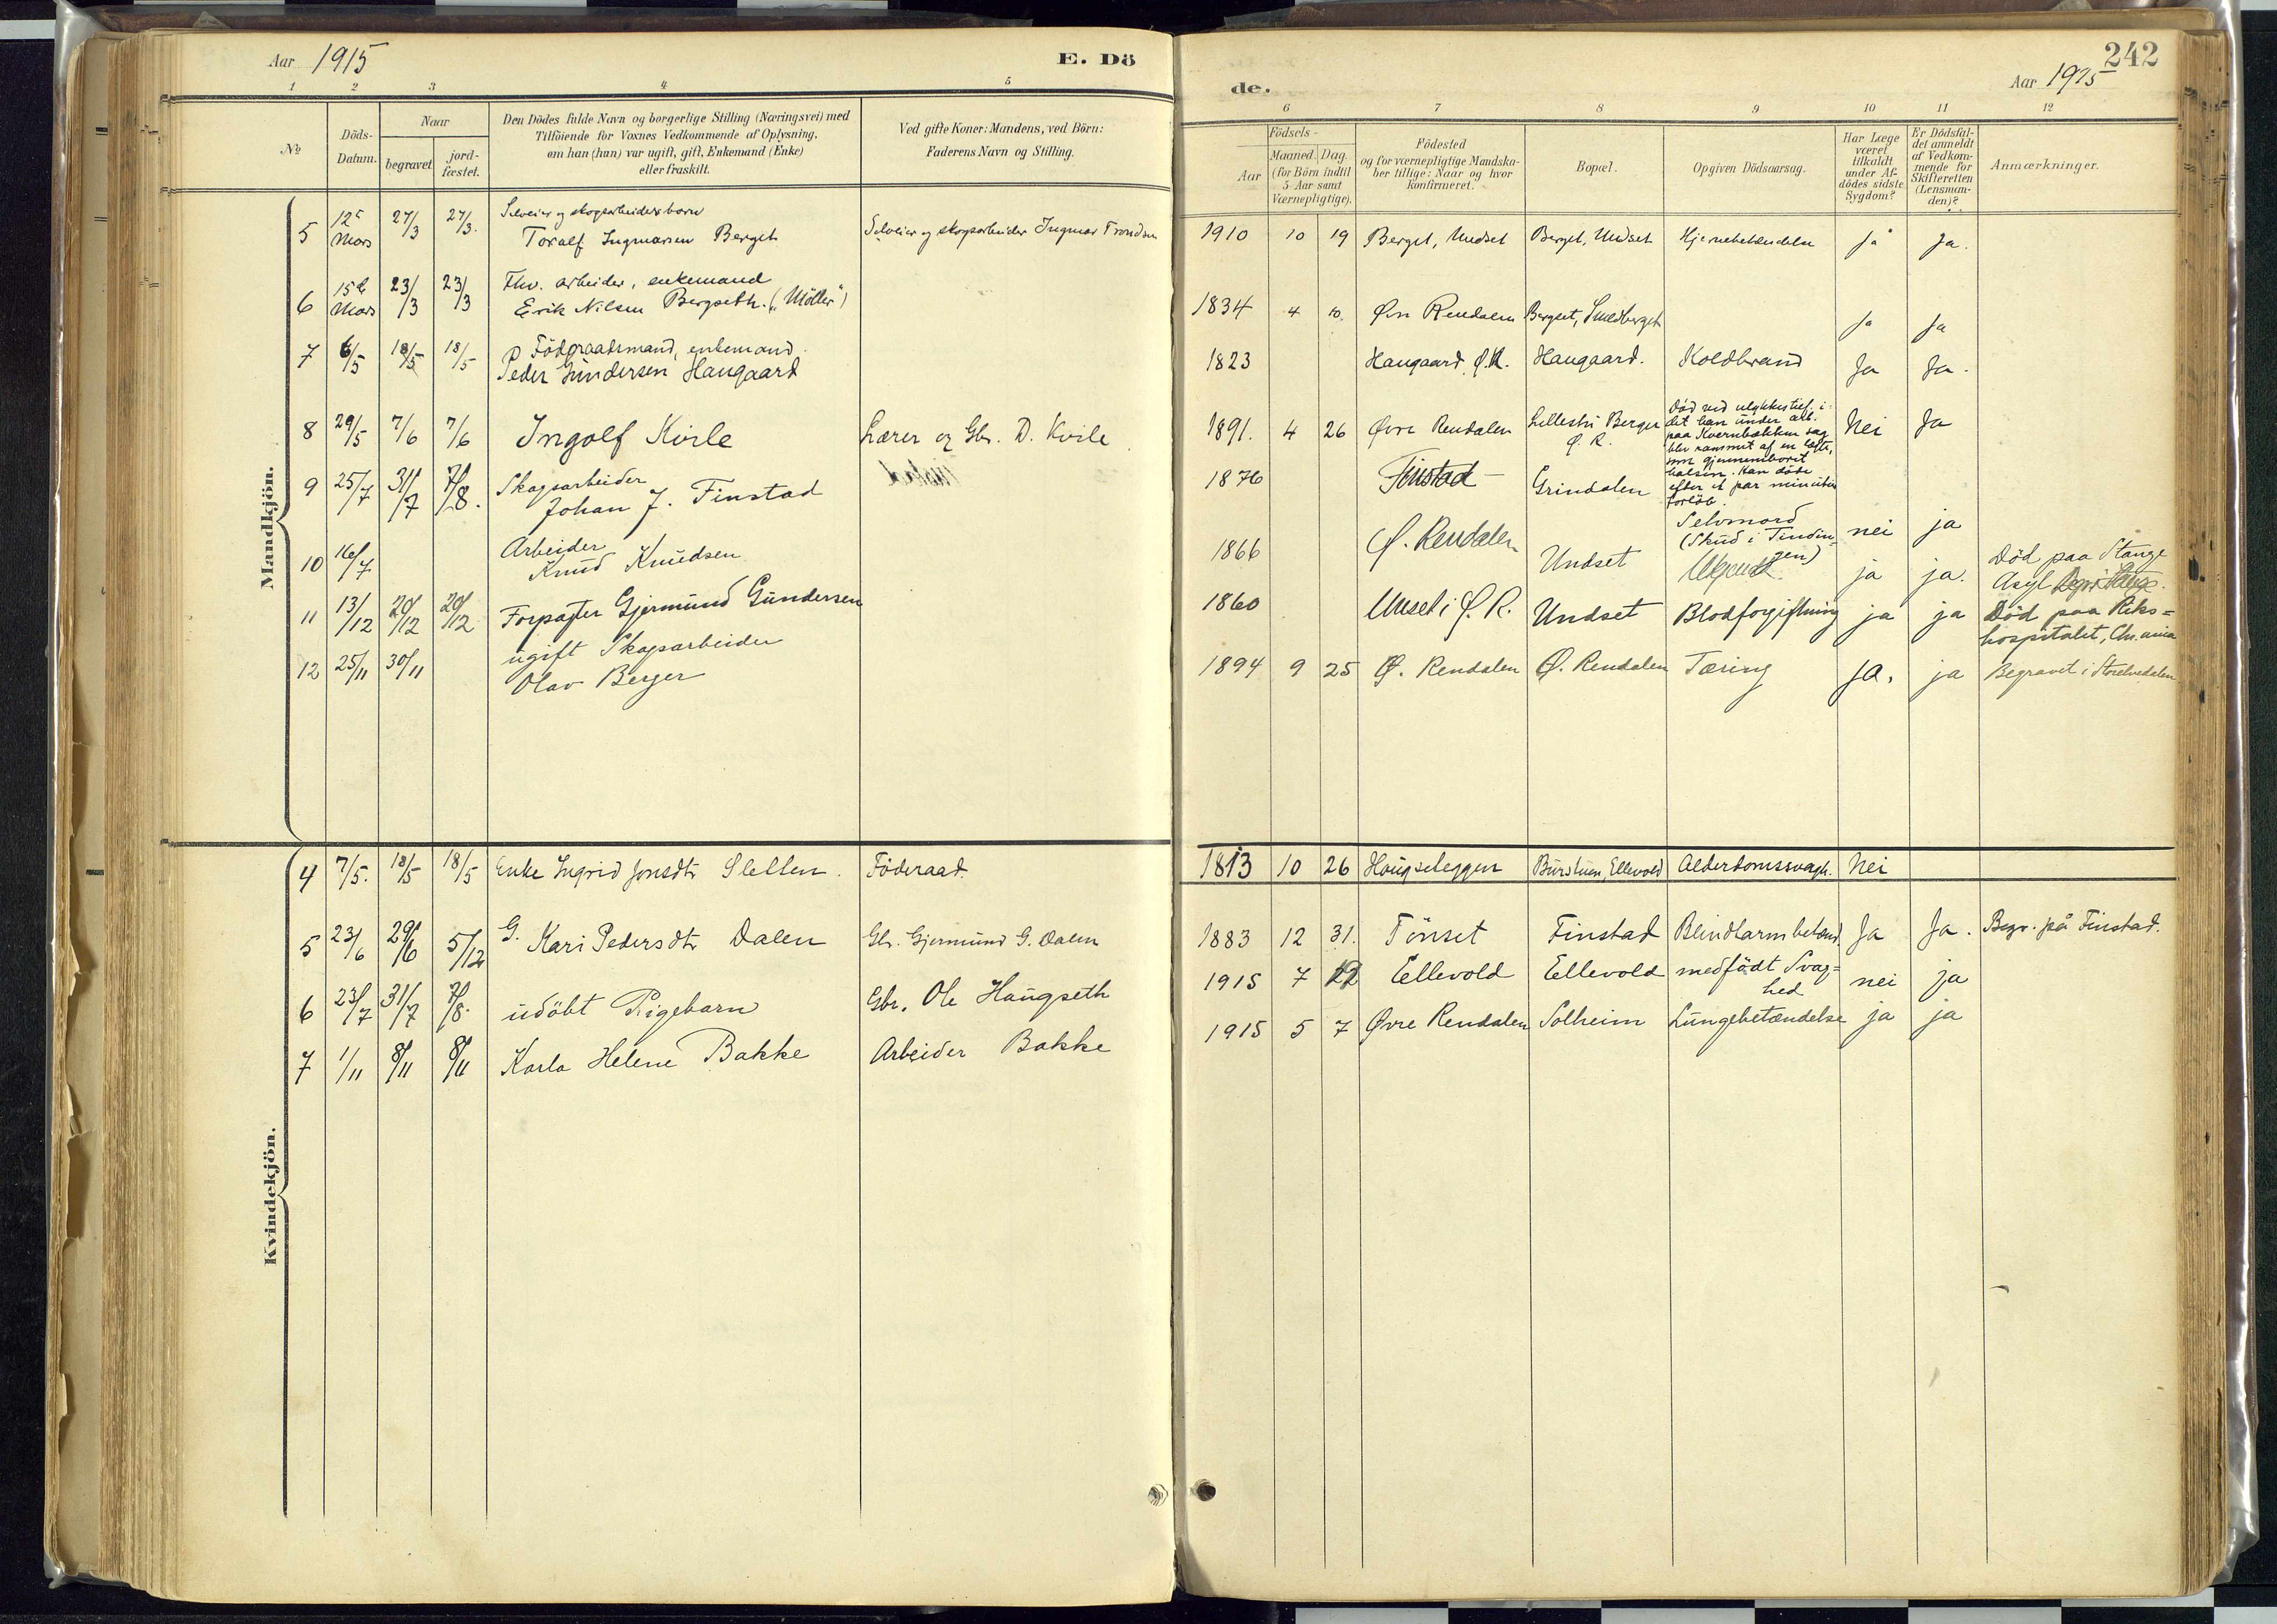 Aar 1915
E. Dö
1 2 3 4 5
№
Döds-
Datum.
Naar
begravet
jord-
fæstet.
Den Dödes fulde Navn og borgerlige Stilling (Næringsvei) med
Tilföiende for Voxnes Vedkommende af Oplysning,
om han (hun) var ugift, gift, Enkemand (Enke)
eller fraskilt.
Ved gifte Koner: Mandens, ved Börn:
Faderens Navn og Stilling.
Mandkjön.
Selveier og skogsarbeiders barn
5 12 Mars 27/3 27/3. Toralf Ingmarsen Berget Selveier og skogsarbeider Ingmar Trondsen
Fhv. arbeider, enkemand
6 15de Mars 23/3 23/3 Erik Nilsen Bergseth. („Möller")
Födraadsmand, enkemand.
7 6/5 18/5 18/5 Peder Gundersen Haugaard
8 29/5 7/6 7/6 Ingolf Kvile Lærer og Gbr. D. Kvile
Skogsarbeider
9 25/7 31/7 7/8. Johan J. Finstad
Arbeider
10 16/7 Knud Knudsen
11 13/12 20/12 20/12 Forpagter Gjermund Gundersen
ugift Skogsarbeider
12 25/11 30/11 Olav Berger
Kvindekjön.
4 7/5. 18/5 18/5 Enke Ingrid Jonsdtr Sletten. Föderaad.
5 23/6 29/6 5/12 G. Kari Pedersdtr Dalen Gbr. Gjermund G. Dalen
6 23/7 31/7 7/8. udöbt Pigebarn Gbr. Ole Haugseth
7 1/11 8/11 8/11 Karla Helene Bakke Arbeider Bakke
242
de.
Aar 1915
6 7 8 9 10 11 12
Födsels-
Aar
Maaned. Dag.
(for Börn indtil
5 Aar samt
Værnepligtige).
Födested
og for værnepligtige Mandska-
ber tillige: Naar og hvor
konfirmeret.
Bopæl.
Opgiven Dödsaarsag.
Har Læge
været
tilkaldt
under Af-
dödes sidste
Sygdom?
Er Dödsfal-
det anmeldt
af Vedkom-
mende for
Skifteretten
(Lensman-
den)?
Anmærkninger.
1910 10 19 Berget, Undset Berget, Undset Hjernebetændelse Ja Ja.
1834 4 10. Övre Rendalen Berget, Smedberget Ja Ja
1823 Haugaard Ø.R. Haugaard. Koldbrand Ja Ja.
1891. 4 26 Øvre Rendalen Lillestu Berger Ø. R. Nei Ja
Död ved ulykkestilf. i
det han under arb.
paa Kvernbækken sag
blev rammet af en
som gjennemboret
halsen. Han döde
efter et par minuters
forlöb.
1876 Finstad Grindalen Selvmord
(Skud i Tindin-
gen) nei ja
1866 Ø. Rendalen Undset ja ja. Död paa Stange
Asyl
1860 Unset i Ø. R. Undset Blodforgiftning ja ja Död paa Riks=
hospitalet, Chr.ania
1894 9 25 Ø. Rendalen Ø. Rendalen Tæring ja. ja Begravet i Storelvedalen
1813 10 26 Haugseteggen Burstuen, Ellevold Alderdomssvagh. Nei
1883 12 31. Tönset Finstad Blindtarmbetænd. Ja Ja. Begr. på Finstad.
1915 7 22 Ellevold Ellevold medfödt Svag=
hed nei ja
1915 5 7 Øvre Rendalen Solheim Lungebetændelse ja ja